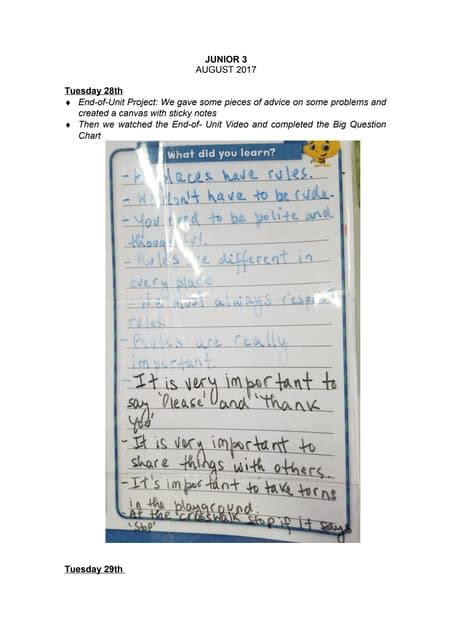 JUNIOR 3
AUGUST 2017
Tuesday 28th
♦ End-of-Unit Project: We gave some pieces of advice on some problems and
created a canvas with sticky notes
♦ Then we watched the End-of- Unit Video and completed the Big Question
Chart
What did you learn?
- places have rules.
- We don't have to be rude.
- You need to be polite and
thoughtful.
- Rules are different in
every place
- We must always respect
rules.
- Rules are really
important.
- It is very important to
say 'Please' and 'Thank
you'
- It is very important to
share things with others.
- It's important to take torns
in the playground.
- At the crosswalk stop if it says
'Stop'
Tuesday 29th